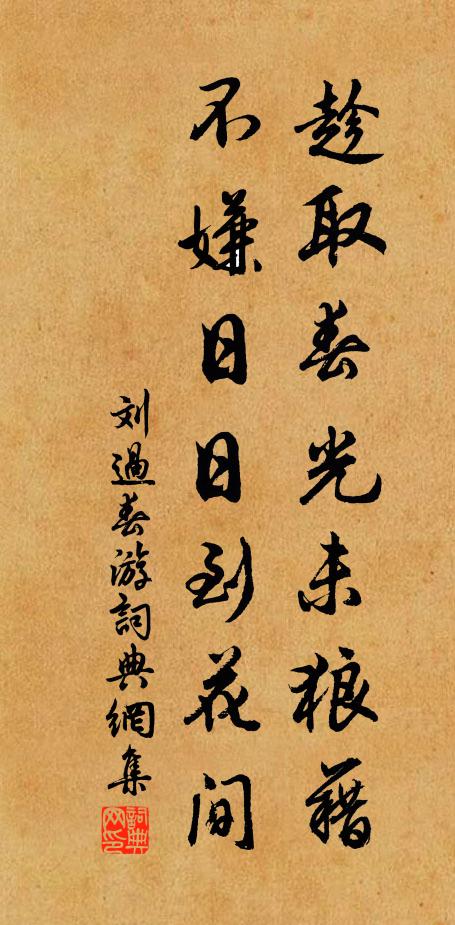 趁取春光未狼藉
不嫌日日到花间
刘過春游詞典網集
詞典网印